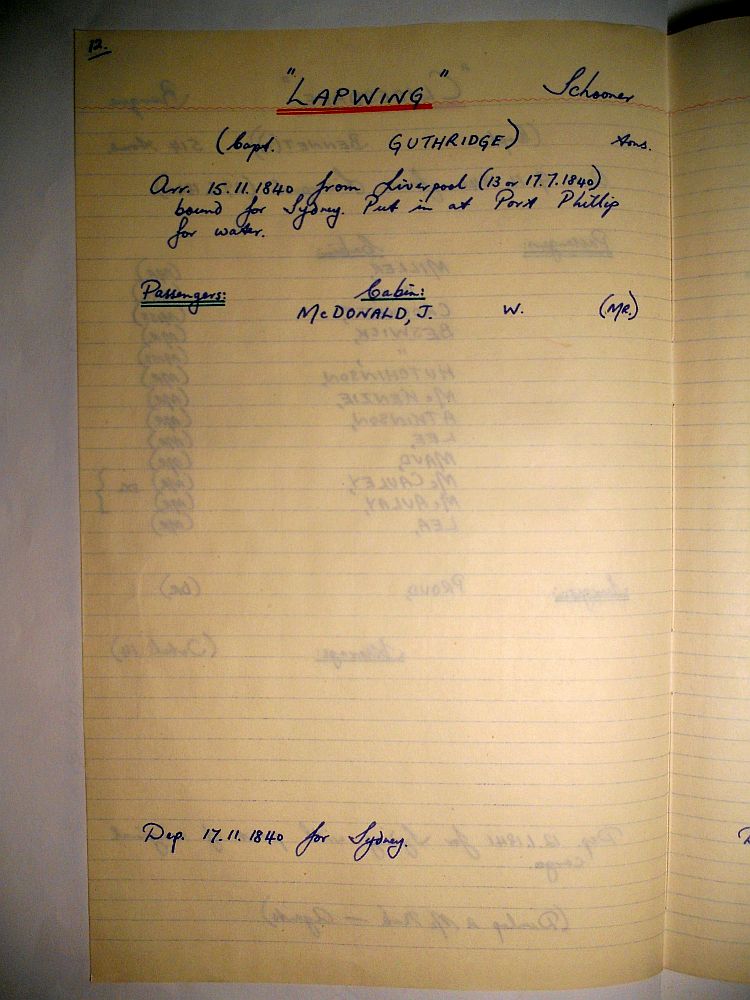 12.
"LAPWING" Schooner
(Capt. GUTHRIDGE) tons.
Arr. 15.11.1840 from Liverpool (13 or 17.7.1840)
bound for Sydney. Put in at Port Phillip
for water.
Passengers: Cabin:
McDONALD, J. W. (MR.)
Dep. 17.11.1840 for Sydney.